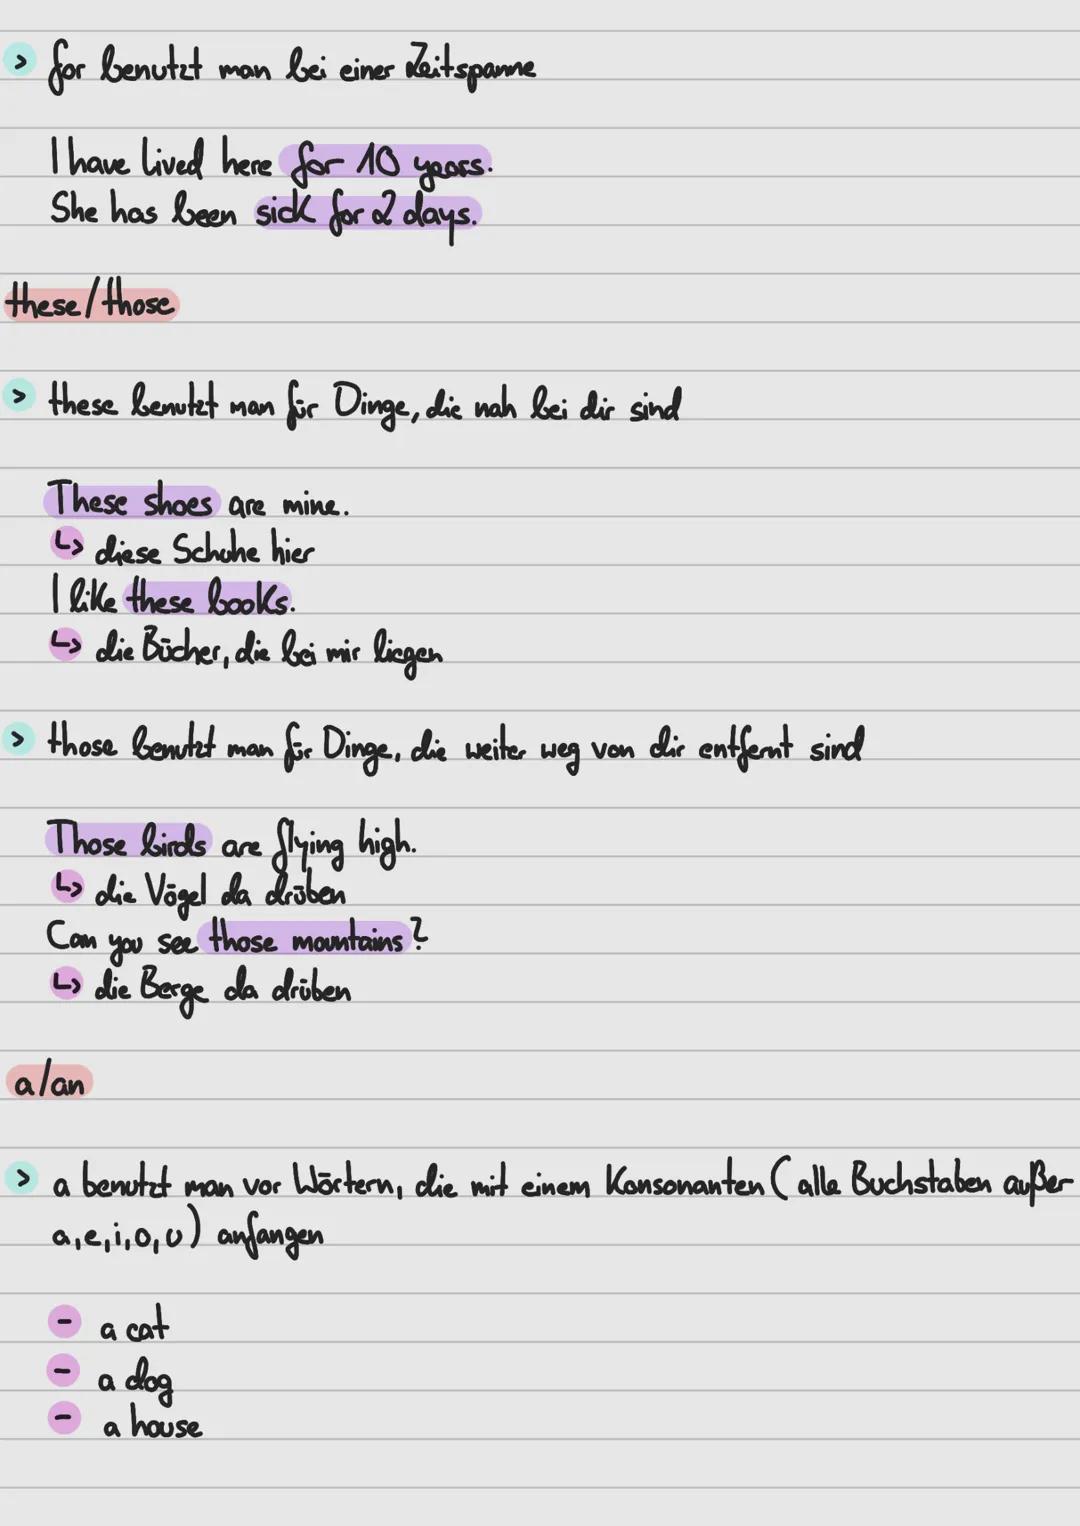 > for benutzt man bei einer Zeitspanne
I have lived here for 10 years.
She has been sick for 2 days.
these/those
> these benutzt man für Dinge, die nah bei dir sind
These shoes are mine.
↳ diese Schuhe hier
I like these books.
↳ die Bücher, die bei mir liegen
> those benutzt man für Dinge, die weiter weg von dir entfernt sind
Those birds are flying high.
↳ die Vögel da drüben
Can you see those mountains?
↳ die Berge da drüben
a/an
> a benutzt man vor Wörtern, die mit einem Konsonanten (alle Buchstaben außer
a, e, i, o, u) anfangen
- a cat
- a dog
- a house